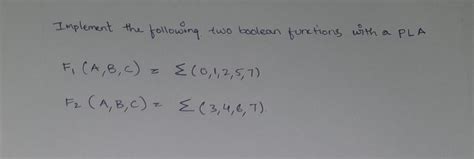 Implement the following two boolean functions with a PLA
F₁ (A,B,C) = Σ(0,1,2,5,7)
F₂ (A,B,C) = Σ(3,4,6,7)